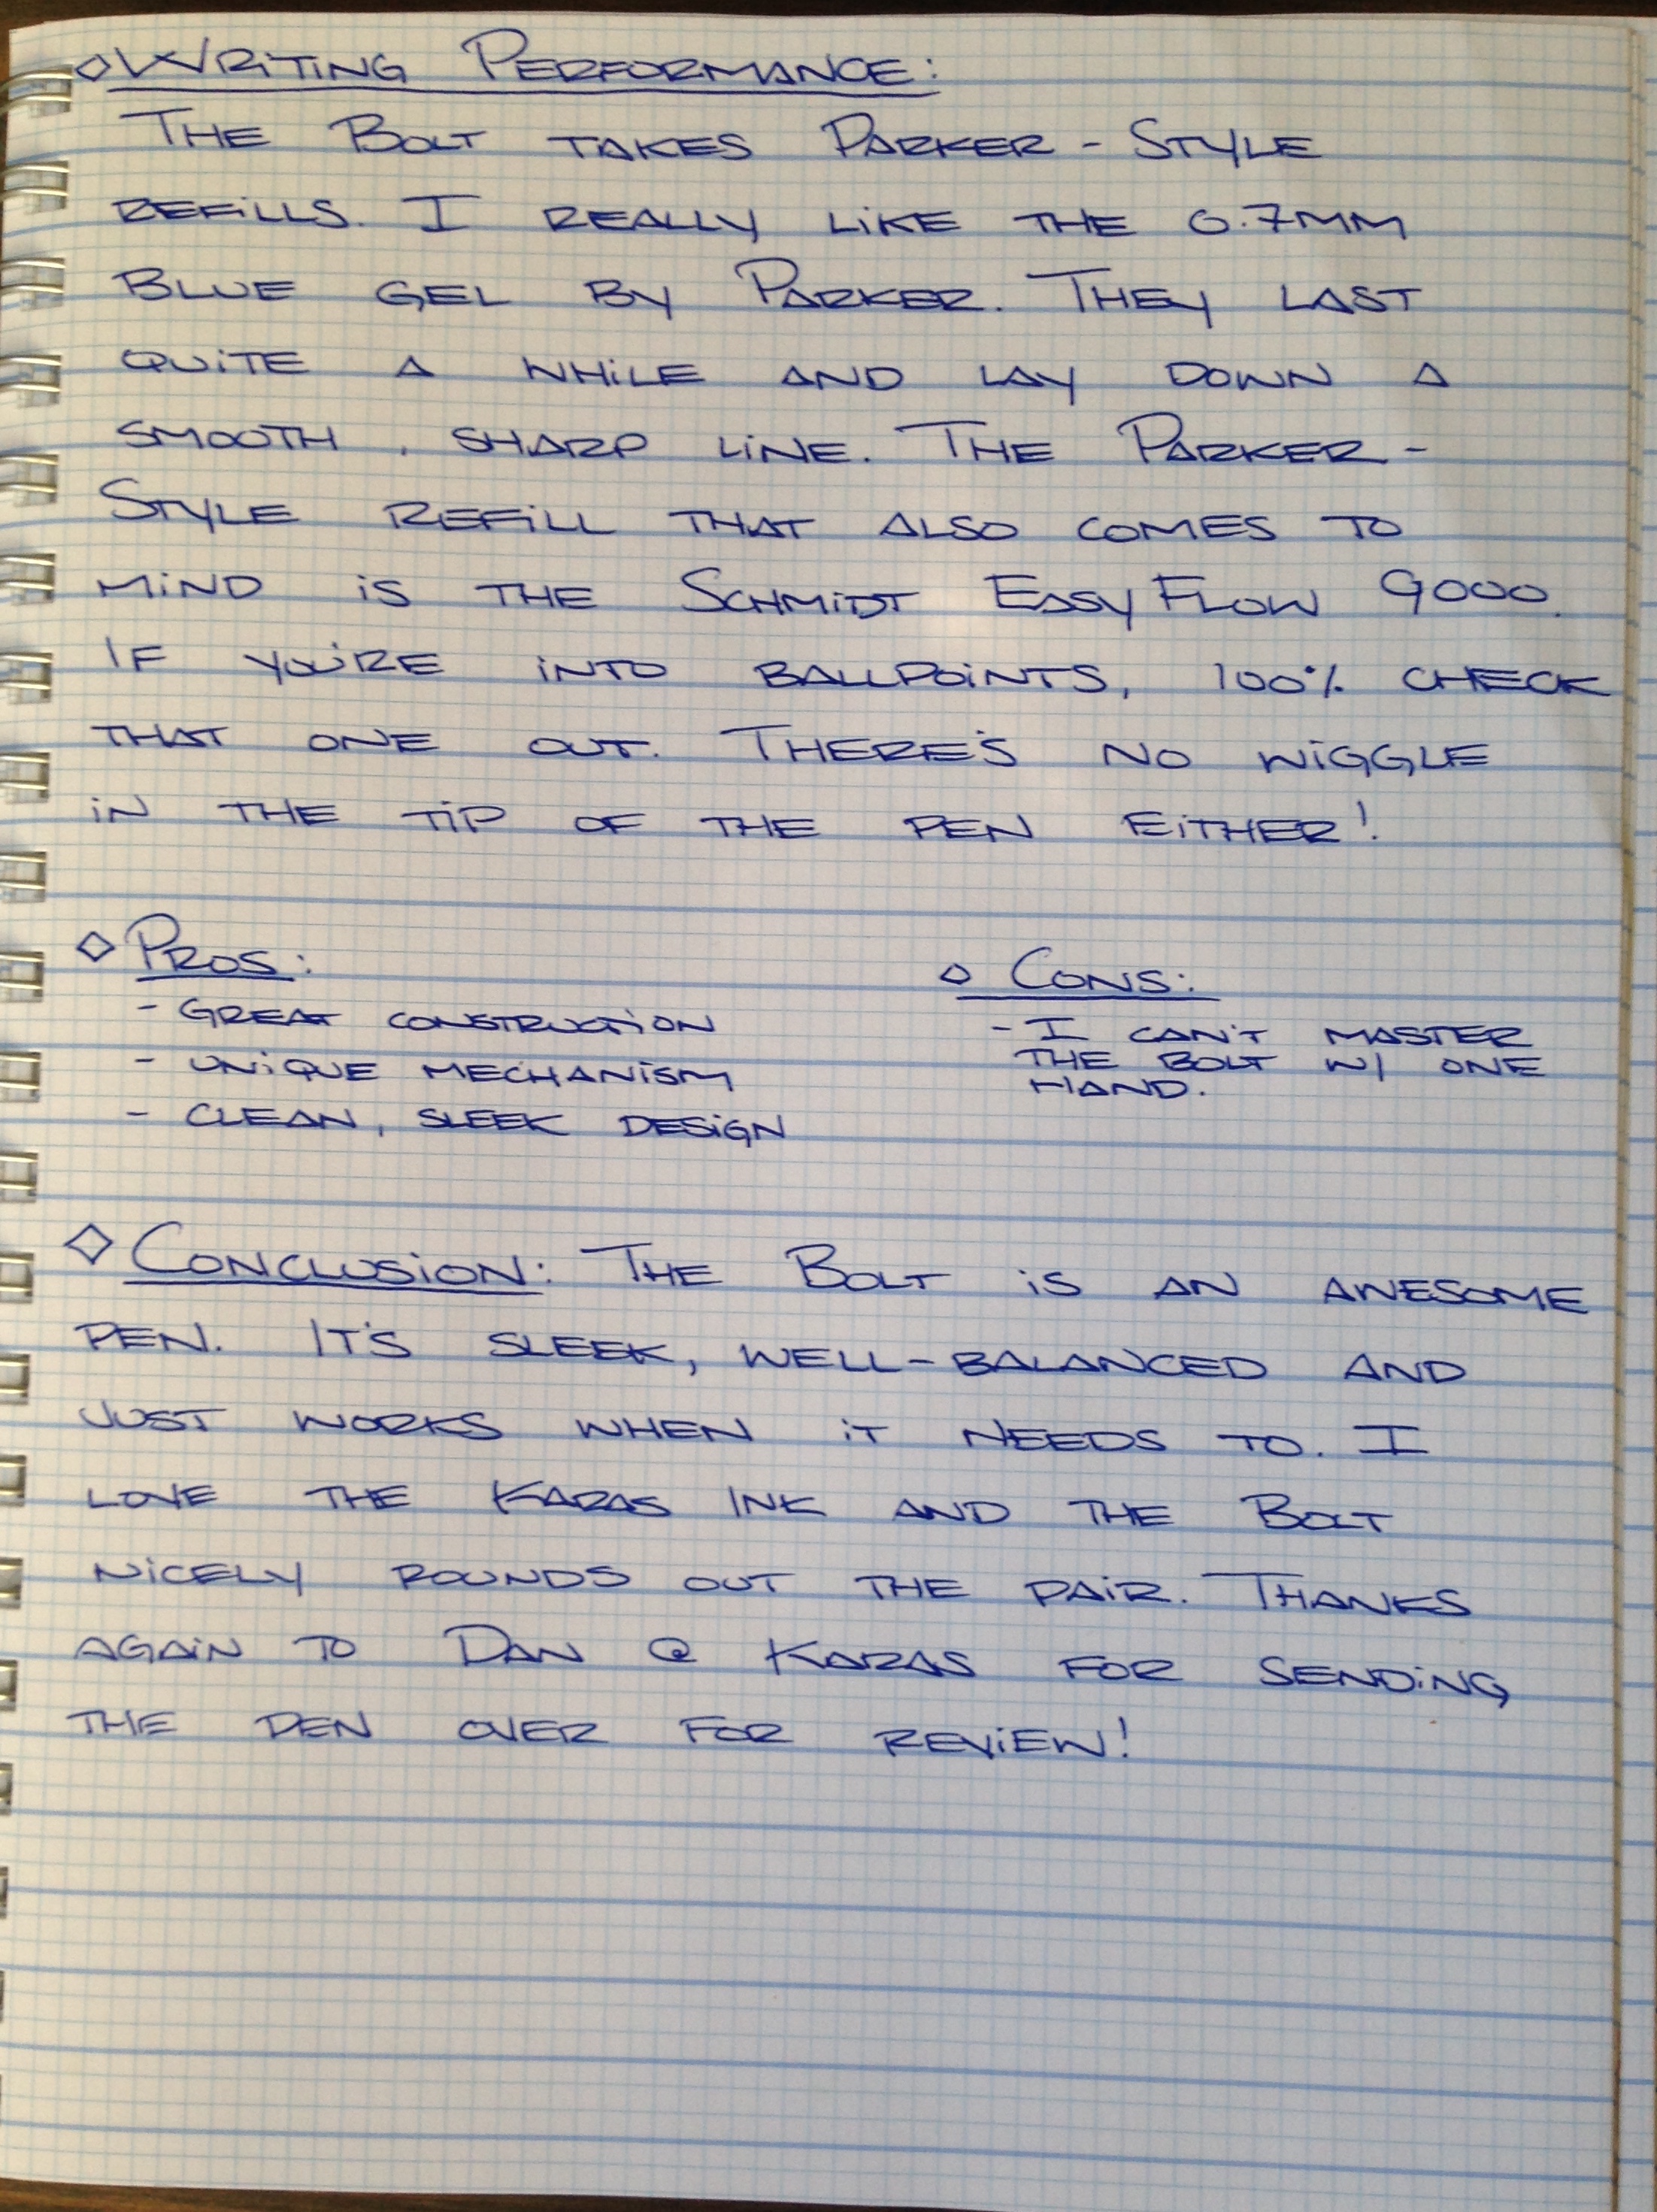 ◇ WRiTiNG PERFORMANCE:
THE BOLT TAKES PARKER - STYLE
REFiLLS. I REALLY LiKE THE 0.7MM
BLUE GEL BY PARKER. THEY LAST
QUiTE A WHiLE AND LAY DOWN A
SMOOTH, SHARP LiNE. THE PARKER -
STYLE REFiLL THAT ALSO COMES TO
MiND iS THE SCHMiDT EASYFLOW 9000.
IF YOU'RE iNTO BALLPOiNTS, 100% CHECK
THAT ONE OUT. THERE'S NO WiGGLE
iN THE TiP OF THE PEN EiTHER!
◇ PROS:
- GREAT CONSTRUCTiON
- UNiQUE MECHANiSM
- CLEAN, SLEEK DESiGN
◇ CONS:
- I CAN'T MASTER
THE BOLT W/ ONE
HAND.
◇ CONCLUSiON: THE BOLT iS AN AWESOME
PEN. IT'S SLEEK, WELL-BALANCED AND
JUST WORKS WHEN iT NEEDS TO. I
LOVE THE KARAS INK AND THE BOLT
NiCELY ROUNDS OUT THE PAiR. THANKS
AGAiN TO DAN @ KARAS FOR SENDiNG
THE PEN OVER FOR REViEW!